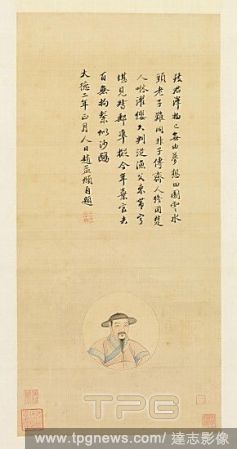 致君澤物已無由夢想田園雲水
頭老子難同非子傳齊人終困楚
人咻濯纓久判從漁父束帶寧
堪見督郵準擬今年棄官去
百無拘繫似沙鷗
大德二年正月人日趙孟頫自題
TPG
www.tpgnews.com / 達志影像